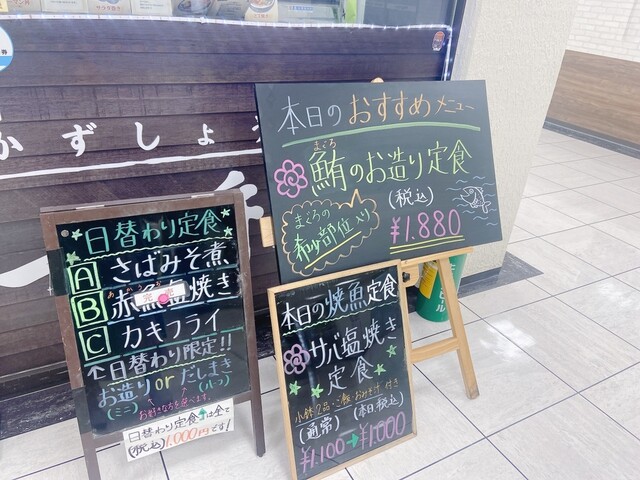 かずしょ
本日のおすすめメニュー
まぐろ
鮪のお造り定食
(税込)
¥1.880
まぐろの
希少部位入り
日替わり定食
A さばみそ煮
B 赤魚塩焼き
完売
C カキフライ
↑日替わり限定!!
お造り or だしまき
(ミニ) (ハーフ)
お好きな方を選べます。
日替わり定食↑は全て
(税込) 1.000円です!
本日の焼魚定食
サバ塩焼き
定食
小鉢2品・ご飯・おみそ汁付き
(通常) (本日、税込)
¥1.100→¥1.000